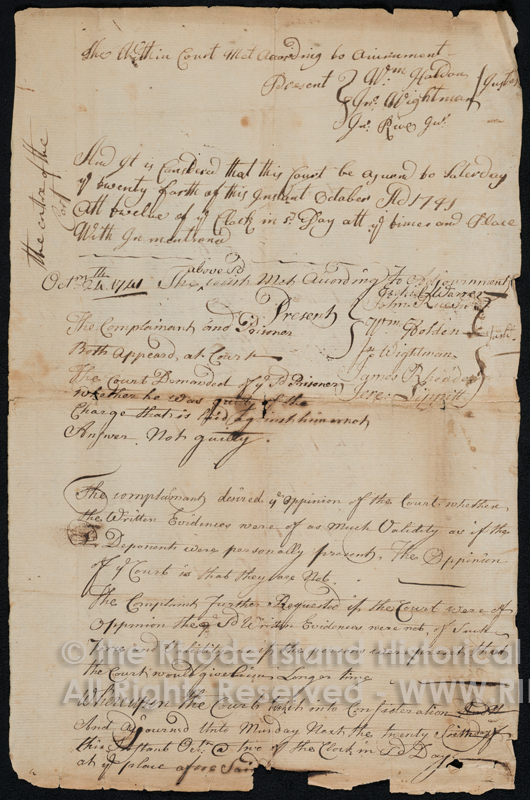 The Within Court Met According to Aiurnment
Present
Wm Haldon
Jno Wightman
Jno Rice Jur
Justs
The order of the
Cort
And It is Considered that this Court be Ajurnd to Saterday
ye twenty forth of this Instant October AD 1741
Att twelve of ye Clock in sd Day att ye time and Place
With In mentiond
Octr 24th 1741 The above sd Court Met According to Adjournment
Present
Wm Holden
Jno Wightman
James Rhodes
Jere Lippitt
Justs
The Complainant and Prisoner
Both Appeard at Court
The Court Demanded of ye sd Prisoner
Whether he was guilty of the
Charge that is Laid Against him or not
Answer Not guilty
The complainant desired ye oppinion of the Court whether
the Written Evidences were of as Much Validity as if the
Deponents were personally present. The Oppinion
of ye Court is that they are Not
The Complaint Further Requested if the Court were of
Oppinion the sd Written Evidences were not of Such
Force and Validity as if the persons were present that
the Court would give him Longer time
Whereupon the Court took into Consideration
And Ajourned Unto Munday Next the twenty Sixth of
this Instant Octr @ two of the Clock in sd Day
at ye place afore Said
© The Rhode Island Historical
All Rights Reserved - WWW.RI